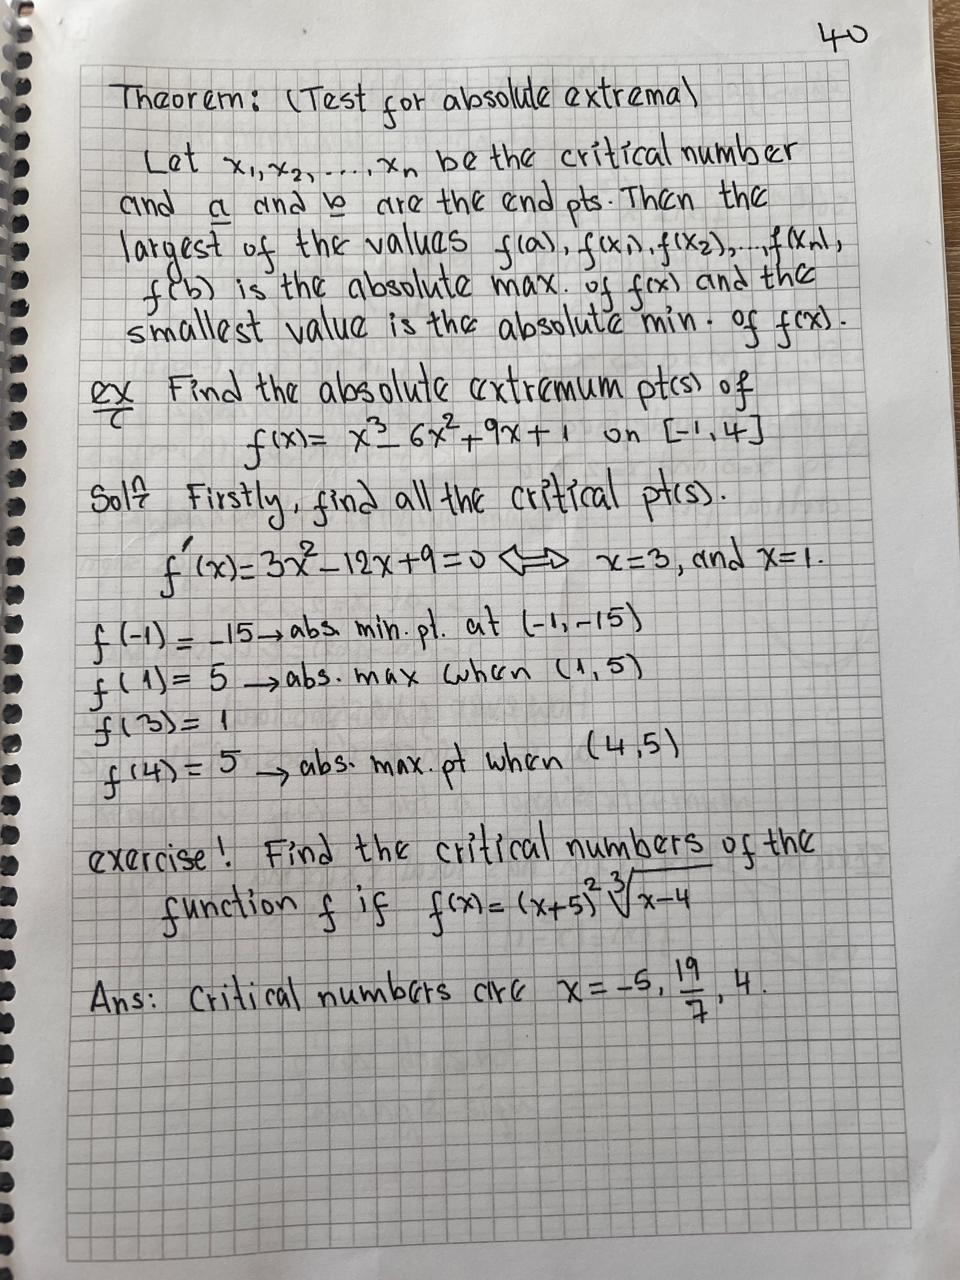 40
Theorem: (Test for absolute extrema)
Let x₁, x₂, ..., xₙ be the critical number
and a and b are the end pts. Then the
largest of the values f(a), f(x₁), f(x₂), ..., f(xₙ),
f(b) is the absolute max. of f(x) and the
smallest value is the absolute min. of f(x).
ex Find the absolute extremum pt(s) of
f(x) = x³ - 6x² + 9x + 1 on [-1, 4]
Solⁿ: Firstly, find all the critical pt(s).
f'(x) = 3x² - 12x + 9 = 0 ⟺ x = 3, and x = 1.
f(-1) = -15 → abs. min. pt. at (-1, -15)
f(1) = 5 → abs. max when (1, 5)
f(3) = 1
f(4) = 5 → abs. max. pt when (4, 5)
exercise! Find the critical numbers of the
function f if f(x) = (x+5)² ∛(x-4)
Ans: Critical numbers are x = -5, 19/7, 4.